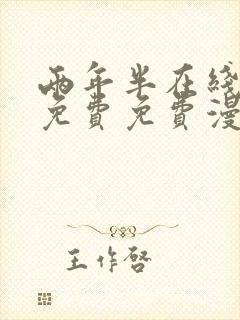 两年半在线
免费免费漫
王作啓